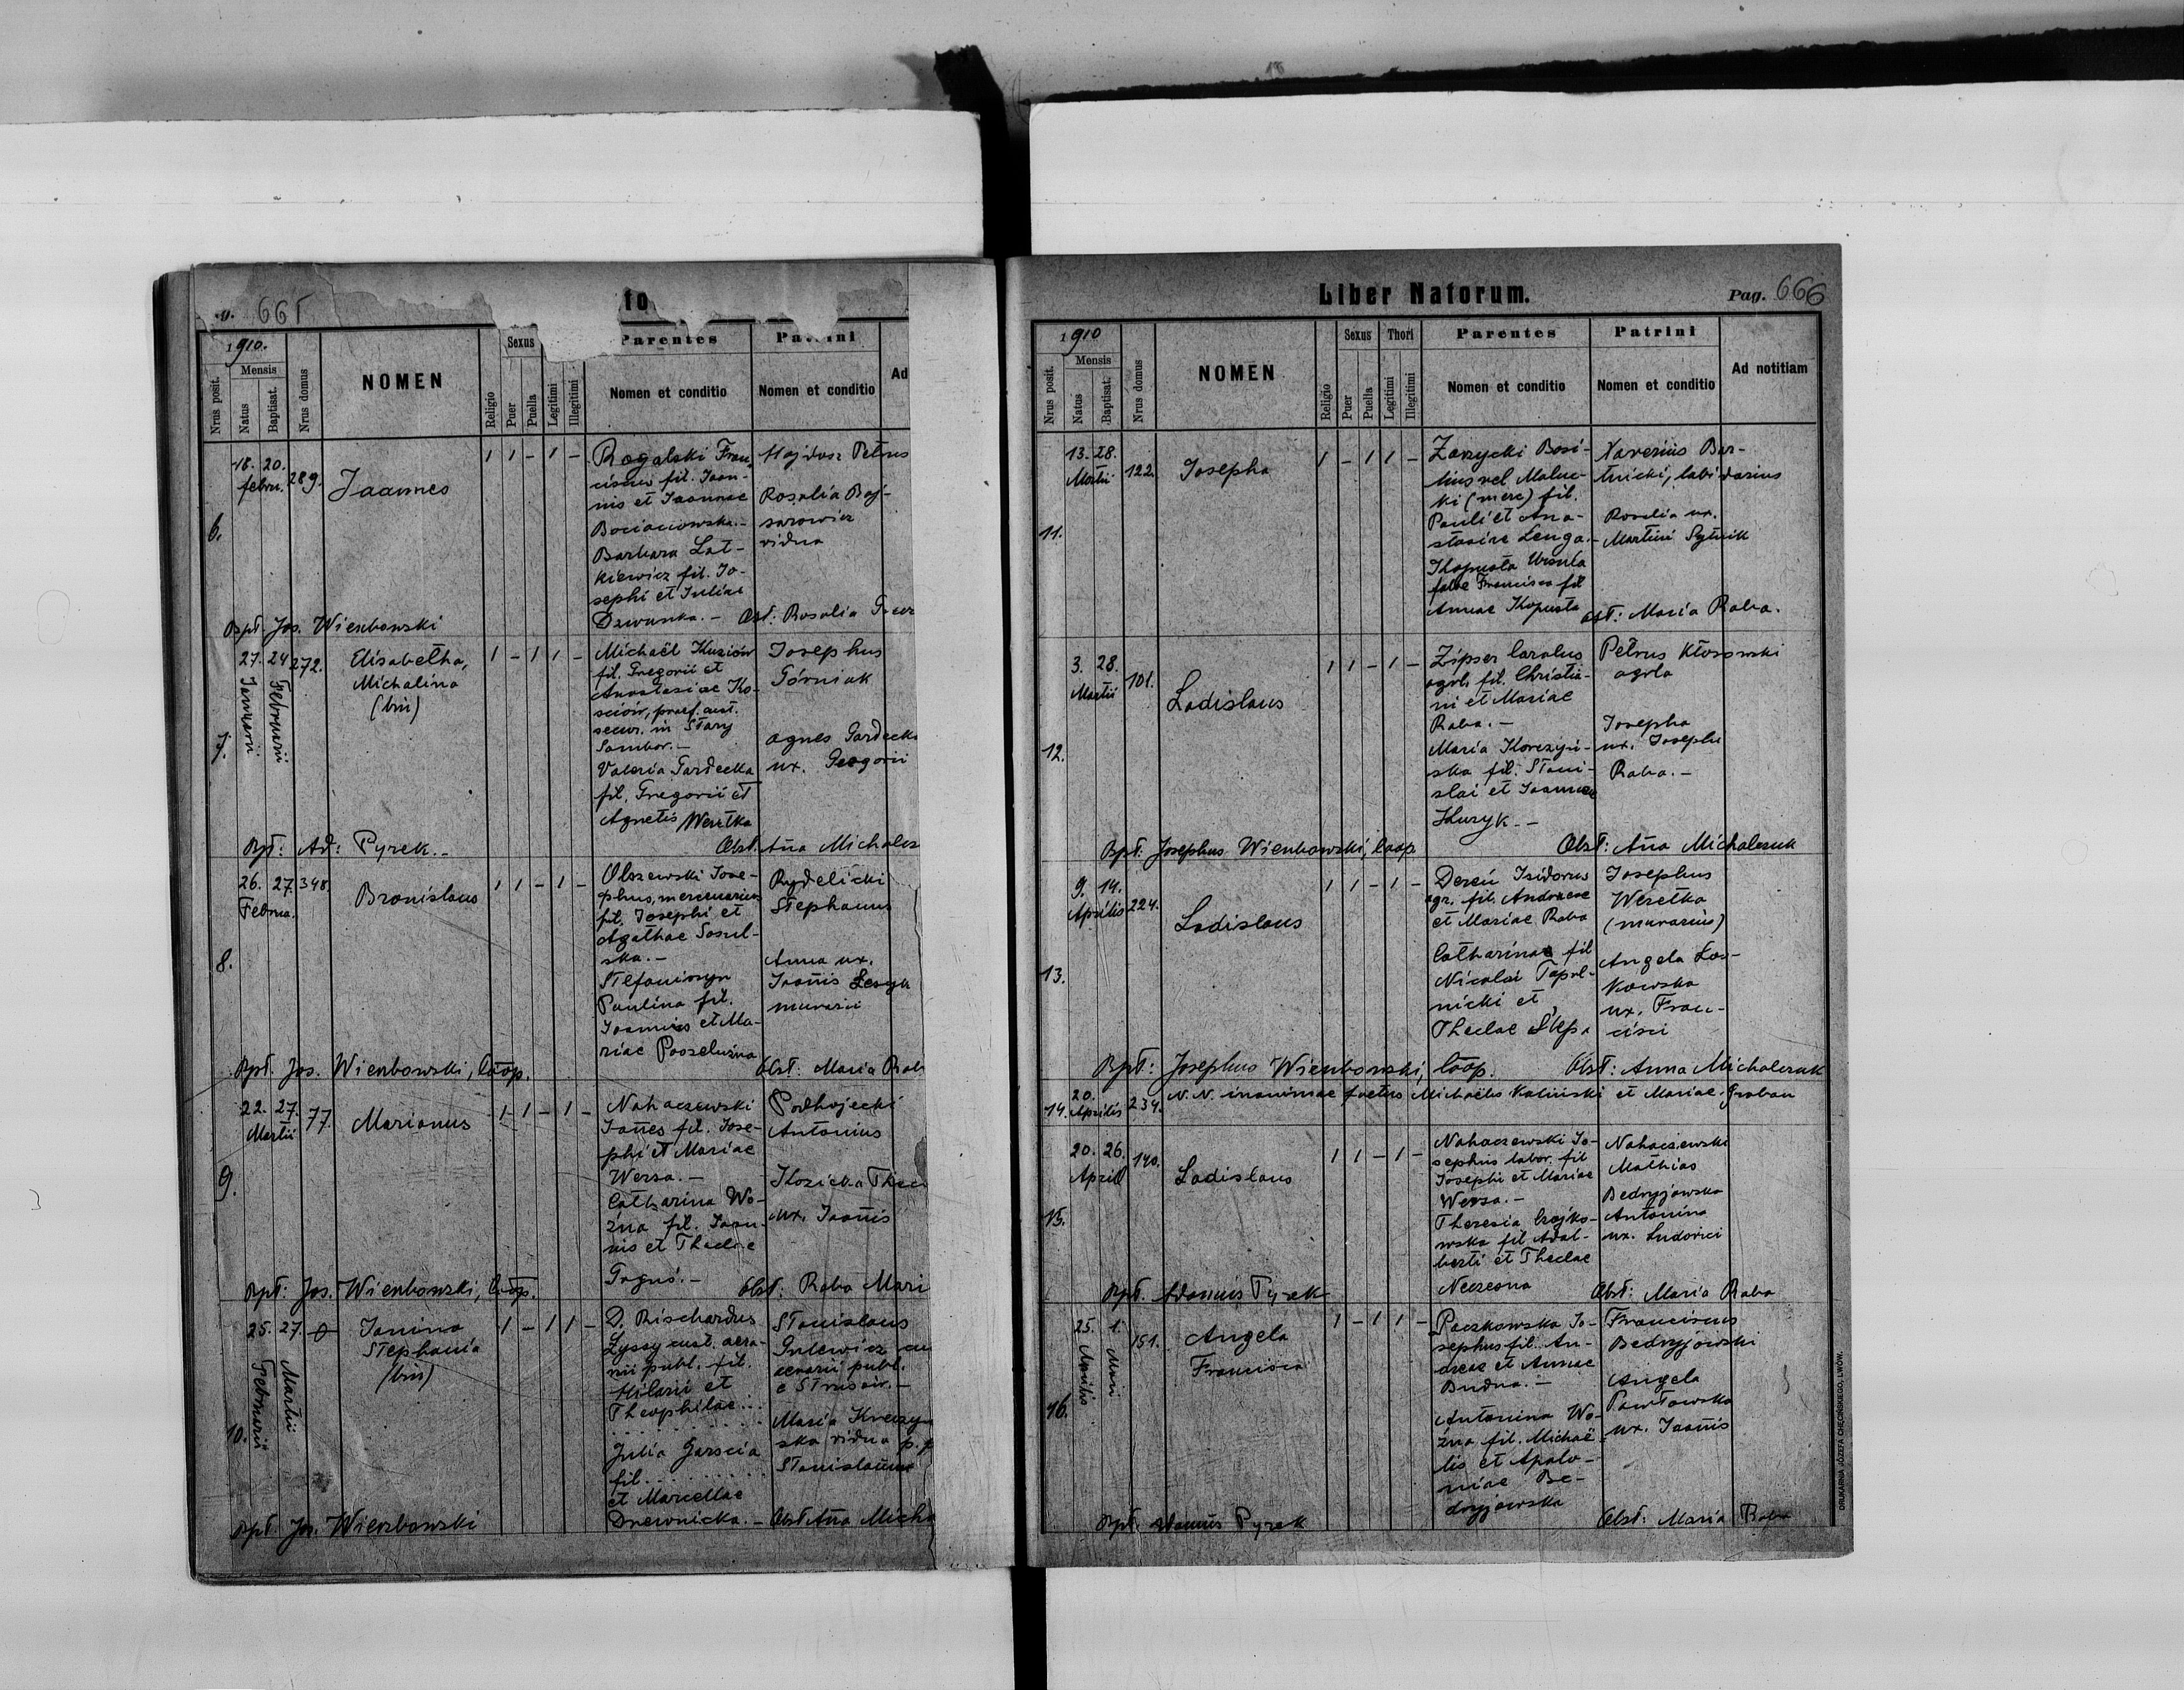 g. 665
1910.
Nrus posit.
Mensis
Natus
Baptisat.
Nrus domus
NOMEN
Religio
Sexus
Puer
Puella
Legitimi
Illegitimi
Parentes
Nomen et conditio
Nomen et conditio
Ad
6.
18. 20.
febru.
289.
Joannes
1 1 - 1 -
Rogalski Fran-
ciscus fil. Joan-
nis et Joannae
Bocianowska.-
Barbara Lat-
kiewicz fil. Jo-
sephi et Juliae
Dziwunka.-
Hajdosz Petrus
Rosalia
vidua
Obst: Rosalia
Bpt. Jos. Wierzbowski
7.
27. 24
Januarii
Februarii
272.
Elisabetha,
Michalina
(bin)
1 - 1 1 -
Michaël Kuziów
fil. Gregorii et
Anastasiae Ko-
sciów, praef. aust.
secur. in Stary
Sambor.-
Valeria Gardecka
fil. Gregorii et
Agnetis Weretka
Josephus
Górniak
Agnes Gardecka
ux. Georgii
Bpt: Ad: Pyrek.-
Obst. Aña Michalcz
8.
26. 27.
Februa.
348.
Bronislaus
1 1 - 1 -
Olszewski Jose-
phus, mercenarius
fil. Josephi et
Agathae Sosul-
ska.-
Stefaniszyn
Paulina fil.
Joannis et Ma-
riae
Rydelicki
Stephanus
Anna ux.
Joañis Lesyk
murarii
Bpt. Jos. Wierzbowski, Coop.
Obst: Maria Rab
9.
22. 27.
Martii
77.
Marianus
1 1 - 1 -
Nahaczewski
Joñes fil. Jose-
phi et Mariae
Wersa.-
Catharina Wo-
źna fil. Joan-
nis et Theclae
Podhajecki
Antonius
Kozicka Thec
ux. Joañis
Bpt: Jos. Wierzbowski, Coop.
Obst: Raba Mari
10.
25. 27.
Februarii
Martii
Janina
Stephania
(bin)
1 - 1 1 -
D. Rischardus
Lyssy cust. aera-
rii publ. fil.
Hilarii et
Theophilae...
Julia Garscia
fil.........
et Marcellae
Drewnicka.-
Stanislaus
aerarii publ.
Maria
ska vidua p. p
Bpt. Jos. Wierzbowski
Obst Aña Micha
Liber Natorum.
Pag. 666
1910
Nrus posit.
Mensis
Natus
Baptisat.
Nrus domus
NOMEN
Religio
Sexus
Puer
Puella
Thori
Legitimi
Illegitimi
Parentes
Nomen et conditio
Patrini
Nomen et conditio
Ad notitiam
11.
13. 28.
Martii
122.
Josepha
1 - 1 1 -
Zarzycki Basi-
lius vel Maluc-
ki (merc) fil.
Pauli et Ana-
stasiae Lenga.-
Kapusta Ursula
false Francisca fil
Annae Kapusta
Xaverius Bar-
tnicki, labidarius
Rosalia ux.
Martini Sytnik
Obst: Maria Raba.
12.
3. 28.
Martii
101.
Ladislaus
1 1 - 1 -
Zipser Carolus
agrla fil. Christia-
ni et Mariae
Raba.-
Maria Korczyń-
ska fil. Stani-
slai et Joannae
Kuzyk.-
Petrus Kłosowski
agrla
Josepha
ux. Josephi
Raba.-
Bpt. Josephus Wierzbowski, Coop
Obst: Aña Michalczuk
13.
9. 14.
Aprilis
224.
Ladislaus
1 1 - 1 -
Dereń Isidorus
agr. fil. Andreae
et Mariae Raba
Catharina fil
Nicolai Topol-
nicki et
Theclae Ślepa
Josephus
Weretka
(murarius)
Angela Las-
kowska
ux. Fran-
cisci
Bpt: Josephus Wierzbowski, Coop.
Obst: Anna Michalczuk
14.
20.
Aprilis
234.
N. N. inanimae foetus Michaëlis Kaliński et Mariae Graban
15.
20. 26.
April
140.
Ladislaus
1 1 - 1 -
Nahaczewski Jo-
sephus labor. fil
Josephi et Mariae
Wersa.-
Theresia Czajko-
wska fil Adal-
berti et Theclae
Neczesna
Nahaczewski
Mathias
Bedryjowska
Antonina
ux. Ludovici
Bpt. Adamus Pyrek
Obst: Maria Raba
16.
25. 1.
Aprilis
Maii
151.
Angela
Francisca
1 - 1 1 -
Paczkowska Jo-
sephus fil. An-
dreae et Annae
Budna.-
Antonina Wo-
źna fil. Michaë-
lis et Apolo-
niae Be-
dryjowska
Franciscus
Bedryjowski
Angela
Pawłowska
ux. Joañis
Bpt. Adamus Pyrek
Obst: Maria Raba
DRUKARNIA JÓZEFA CHĘCIŃSKIEGO, LWÓW.